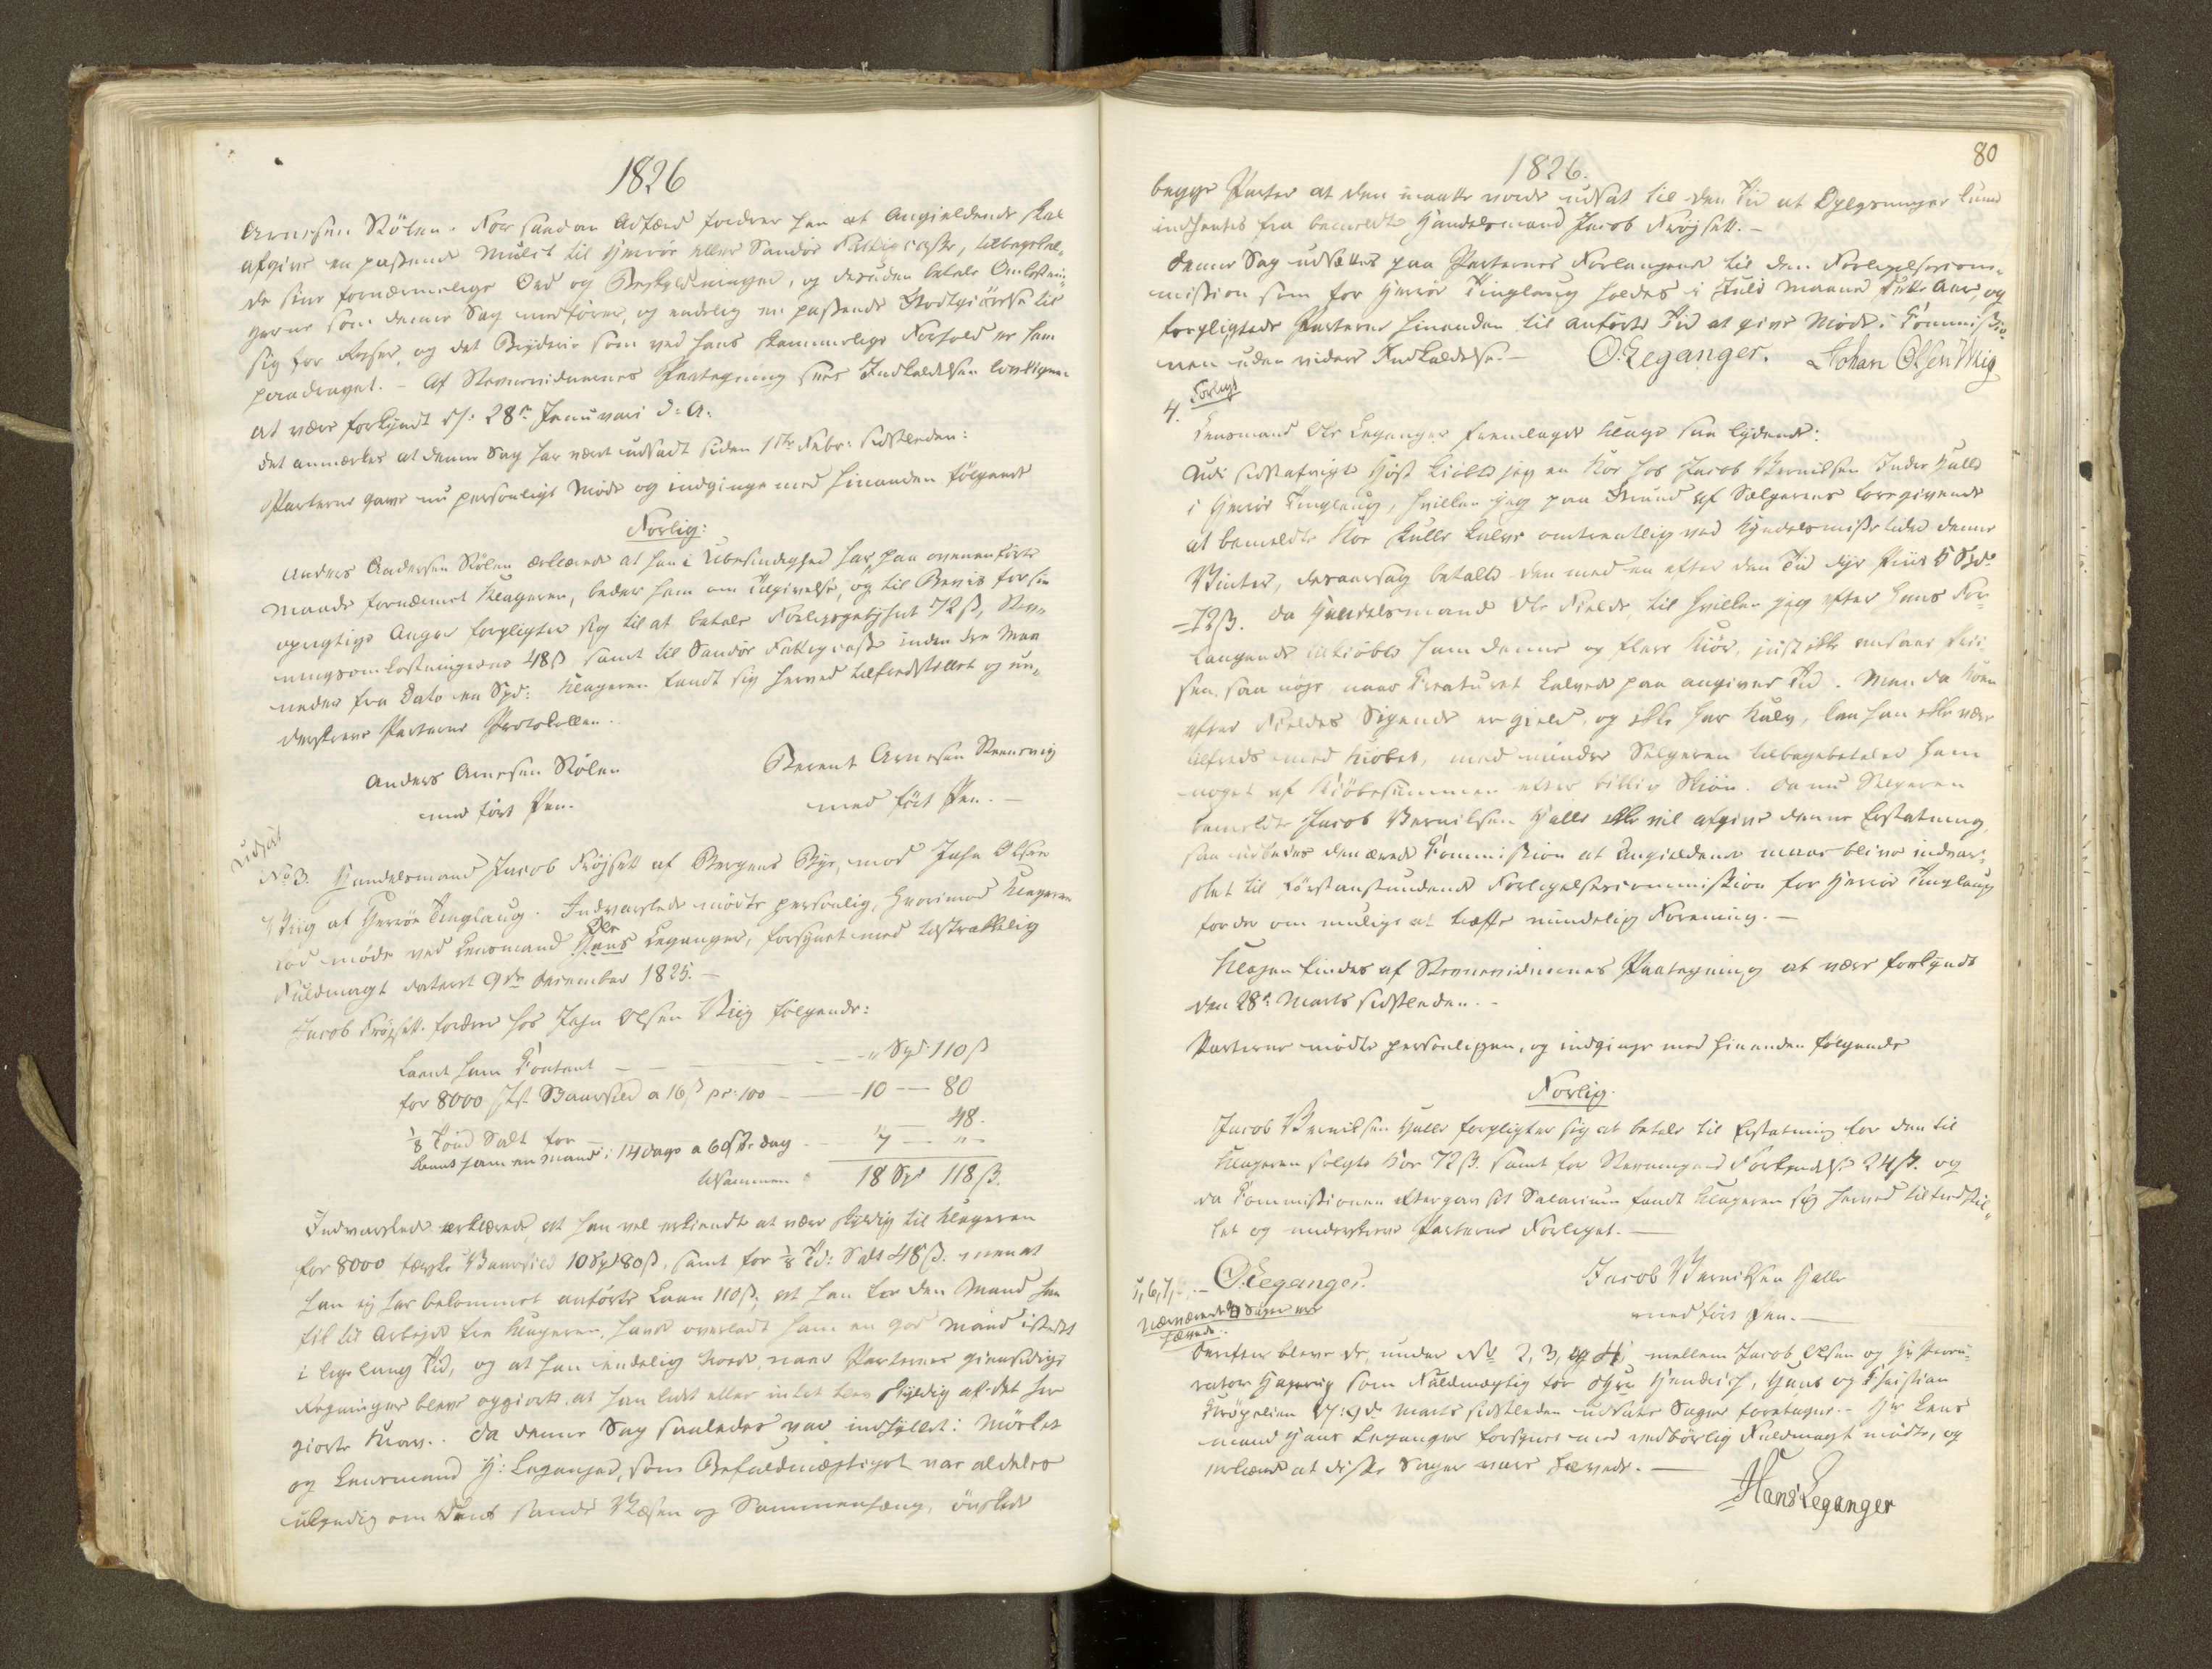 1826
Arnesen Rölen. For saadan Adfærd fordrer han at Angieldende skal
afgive en passende Mulct til Herröe eller Sandöe Fattigcasse, tilbagekal-
de sine fornærmelige Ord og Beskyldninger, og desuden betale Omkostnin-
gerne som denne Sag medförer, og endelig en passende Godtgiörelse til
sig for Reiser, og det Bryderie som ved hans skammelige Forhold er ham
paadraget. - Af Stevnevidnernes Paategning sees Indkaldelsen lovligen
at være forkyndt d: 28de Januari d: A:
Det anmærkes at denne Sag har været udsadt siden 1ste Febr: sidstleden:
Parterne gave nu personligt Möde og indginge med hinanden fölgende
Forlig:
Anders Andersen Rölen erklærede at han i Ubesindighed har paa ovenanförte
Maade fornærmet Klageren, beder ham om Tilgivelse, og til Beviis for sin
oprigtige Anger forpligter sig til at betale Forligsgebyhret 72 ß, Stev-
ningsomkostningerne 48 ß samt til Sandöe Fattigcasse inden tre Maa-
neder fra Dato en Spd: Klageren fandt sig herved tilfredsstillet og un-
derskrev Parterne Protokollen.
Anders Arnesen Rölen Berent Arnesen Steensvig
med fört Pen. med fört Pen. -
Udsat
No 3. Handelsmand Jacob Fröjsett af Bergens Bye, mod John Olsen
Wiig af Herröe Tinglaug. Indvarslede mödte personlig, hvorimod Klageren
lod möde ved Lensmand Hans Ole Leganger, forsynet med tilstrækkelig
Fuldmagt dateret 9de December 1825. -
Jacob Fröjsett fordrer hos John Olsen Wiig fölgende:
Laant ham Contant - - - " Spd 110 ß
for 8000 Stk. Vaarsild a 16 ß pr: 100 - - 10 - 80
1/8 Tönd Salt for - " - 48.
Laant ham en Mand i 14 Dage a 60 ß pr. Dag - 7 - " -
tilsammen 18 Spd 118 ß.
Indvarslede erklærede, at han vel erkiendte at være skyldig til Klageren
for 8000 ferske Vaarsild 10 Spd 80 ß, samt for 1/8 Td: Salt 48 ß. men at
han ej har bekommet anförte Laan 110 ß, at han for den Mand han
fik til Arbejde fra Klageren, havde overladt ham en god Mand istedet
i lige lang Tid, og at han endelig troede, naar Parternes giensidige
Regninger bleve opgiorte, at han lidt eller intet blev skyldig af det her
giorte Krav. Da denne Sag saaledes var indhyllet i Mörket
og Lensmand H: Leganger, som Befuldmægtiget var aldeles
ukyndig om dens sande Væsen og Sammenhæng, önskede
80
1826.
begge Parter at den maatte vorde udsat til den Tid at Oplysninger kunde
indhentes fra bemeldte Handelsmand Jacob Fröjsett. -
Denne Sag udsættes paa Parternes Forlangende til den Forligelsescom-
mission som for Herröe Tinglaug holdes i Juli Maaned dette Aar, og
forpligtede Parterne hinanden til anförte Tid at give Möde i Commissio-
nen uden videre Indkaldelse. - O. Leganger. Johan Olsen Wiig
Forligt
4.
Lensmand Ole Leganger fremlagde Klage saa lydende:
Udi sidstafvigte Höst kiöbte jeg en Koe hos Jacob Berentsen Indre Halle
i Herröe Tinglaug, hvilken jeg paa Grund af Sælgerens foregivende
at bemeldte Koe skulle kalve omtrentlig ved Kyndelsmisse tider denne
Vinter, desaarsag betalte den med en efter den Tid dyr Priis 5 Spd.
72 ß. Da Handelsmand Ole Fielde, til hvilken jeg efter Hans For-
langende tilkiöbte ham denne og flere Kiör, just ikke ansaae Prii-
sen saa nöje, naar Creaturet kalvede paa angiven Tid. Men da Koen
efter Fieldes Sigende er gield, og ikke har Kalv, kan han ikke være
tilfreds med Kiöbet, med mindre Sælgeren tilbagebetaler ham
noget af Kiöbesummen efter billig Skiön. Da nu Sælgeren
bemeldte Jacob Berentsen Halle ikke vil afgive denne Erstatning
saa udbedes den ærede Commission at Angieldende maae blive indvars-
slet til förstanstundende Forligelsescommission for Herröe Tinglaug
for der om muligt at træffe mindelig Forening. -
Klagen findes af Stevnevidnernes Paategning at være forkyndt
den 28de Marts sidstleden. -
Parterne mödte personligen, og indginge med hinanden fölgende
Forlig.
Jacob Berentsen Halle forpligter sig at betale til Erstatning for den til
Klageren solgte Koe 72 ß. samt for Stevningens Forkyndelse 24 ß. og
da Commissionen eftergav sit Salarium fandt Klageren sig herved tilfredsstil-
let og underskrev Parterne Forliget. -
O. Leganger. Jacob Berentsen Halle
med fört Pen. -
5, 6, 7,
Nærværende 3 Sager ere
hævede.
Derefter bleve de, under No 2, 3, og 4, mellem Jacob Olsen og Hr Procu-
rator som Fuldmægtig for Hendrich, Hans og Christian
d: 9de Marts sidstleden udsatte Sager foretagne. - Hr Lens-
mand Hans Leganger forsynet med vedbörlig Fuldmagt mödte, og
erklærede at disse Sager vare hævede. -
Hans Leganger